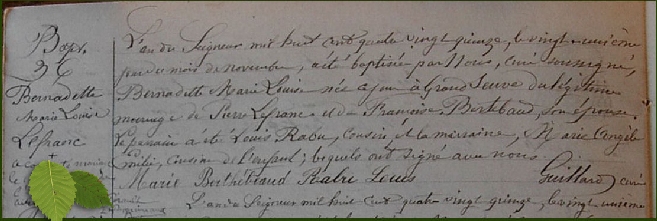 Bapt.
36
Bernadette
Maria Louise
Lefranc
L'an du Seigneur mil huit cent quatre vingt quinze, le vingt unième
jour du mois de novembre, a été baptisée par Nous, curé soussigné,
Bernadette Marie Louise née à Grand du légitime
mariage de Pierre Lefranc et de Françoise Berthebaud, son épouse.
Le parrain a été Louis Rabu, cousin, et la marraine, Marie Angèle
cousine de l'enfant; lesquels ont signé avec nous.
Marie Berthebaud Rabu Louis curé
L'an du Seigneur mil huit cent quatre vingt quinze, le vingt unième